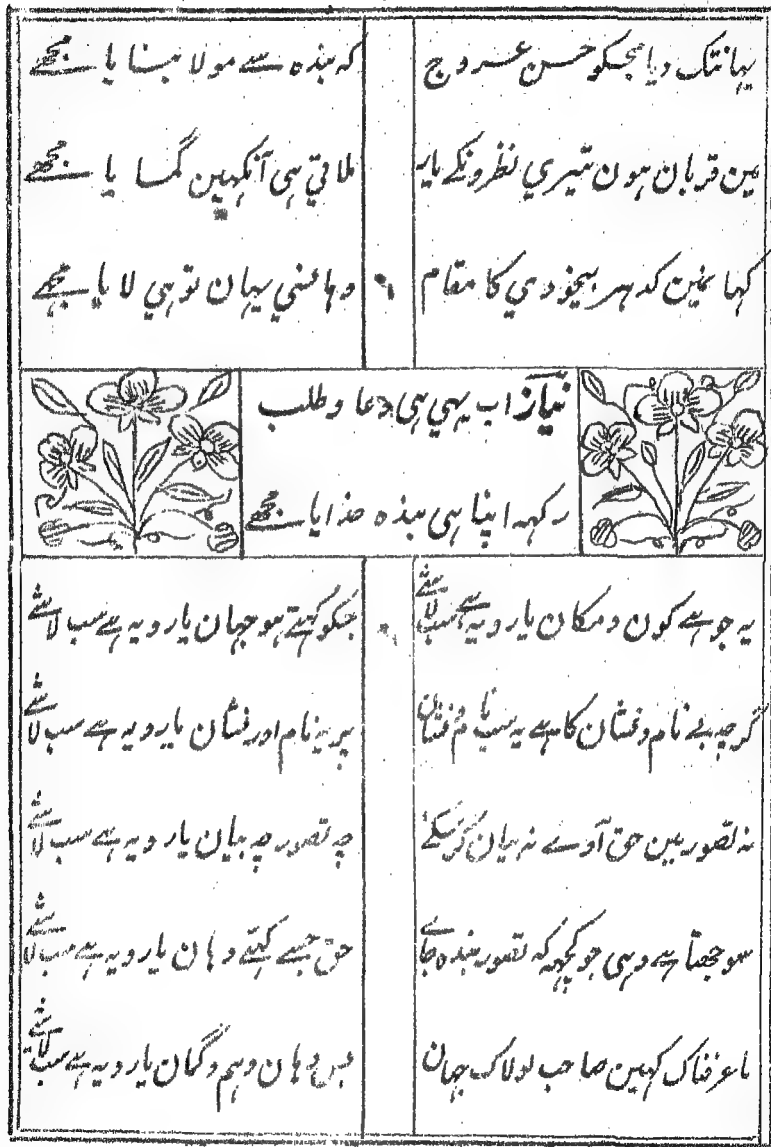 یہانتک دیا مجکو حسن عروج
کہ بندہ سے مولا بنایا مجھے
مین قربان ہون تیری نظرونکے یار
ملاتی ہی آنکہین گمایا مجھے
کہا ہمنین کدہر بیخودی کا مقام
وہانسی یہان توہی لایا مجہے
نیاز اب یہی ہی دعا و طلب
رکہہ اپنا ہی بندہ خدایا مجھے
یہ جو ہے کون و مکان یارو یہ ہے سب لاشے
جسکو کہتے ہو جہان یارو یہ ہے سب لاشے
گرچہ بے نام و نشان کا ہے یہ سب نام و نشان
پر یہ نام اور نشان یارو یہ ہے سب لاشے
نہ تصور مین حق آوے نہ بیان کر سکئے
چہ تصور چہ بیان یارو یہ ہے سب لاشے
سوجھتا ہے وہی جو کچہہ کہ تصور بندہ جاے
حق جسے کہتے وہان یارو یہ ہے سب لاشے
ماعرفناک کہین صاحب لولاک جہان
بس وہان وہم و گمان یارو یہ ہے سب لاشے